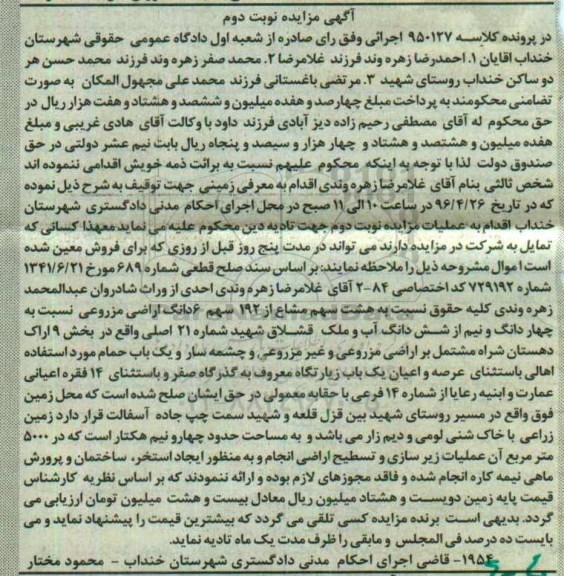 آگهی مزایده نوبت دوم
در پرونده کلاسه ۹۵۰۱۲۷ اجرائی وفق رای صادره از شعبه اول دادگاه عمومی حقوقی شهرستان
خنداب اقایان ۱. احمدرضا زهره وند فرزند غلامرضا ۲. محمد صفر زهره وند فرزند محمد حسن هر
دو ساکن خنداب روستای شهید ۳. مرتضی باغستانی فرزند محمد علی مجهول المکان به صورت
تضامنی محکومند به پرداخت مبلغ چهارصد و هفده میلیون و ششصد و هشتاد و هفت هزار ریال در
حق محکوم له آقای مصطفی رحیم زاده دیز آبادی فرزند داود با وکالت آقای هادی غریبی و مبلغ
هفده میلیون و هشتصد و هشتاد و چهار هزار و سیصد و پنجاه ریال بابت نیم عشر دولتی در حق
صندوق دولت لذا با توجه به اینکه محکوم علیهم نسبت به برائت ذمه خویش اقدامی ننموده اند
شخص ثالثی بنام آقای غلامرضا زهره وندی اقدام به معرفی زمینی جهت توقیف به شرح ذیل نموده
که در تاریخ ۹۶/۴/۲۶ در ساعت ۱۰ الی ۱۱ صبح در محل اجرای احکام مدنی دادگستری شهرستان
خنداب اقدام به عملیات مزایده نوبت دوم جهت تادیه دین محکوم علیه می نماید معهذا کسانی که
تمایل به شرکت در مزایده دارند می تواند در مدت پنج روز قبل از روزی که برای فروش معین شده
است اموال مشروحه ذیل را ملاحظه نمایند: بر اساس سند صلح قطعی شماره ۶۸۹ مورخ ۱۳۴۱/۶/۲۱
شماره ۷۲۹۱۹۲ کد اختصاصی ۸۴-۲ آقای غلامرضا زهره وندی احدی از وراث شادروان عبدالمحمد
زهره وندی کلیه حقوق نسبت به هشت سهم مشاع از ۱۹۲ سهم ۶دانگ اراضی مزروعی نسبت به
چهار دانگ و نیم از شش دانگ آب و ملک قشلاق شهید شماره ۲۱ اصلی واقع در بخش ۹ اراک
دهستان شراه مشتمل بر اراضی مزروعی و غیر مزروعی و چشمه سار و یک باب حمام مورد استفاده
اهالی باستثنای عرصه و اعیان یک باب زیارتگاه معروف به گذرگاه صفر و باستثنای ۱۴ فقره اعیانی
عمارت و ابنیه رعایا از شماره ۱۴ فرعی با حقابه معمولی در حق ایشان صلح شده است که محل زمین
فوق واقع در مسیر روستای شهید بین قزل قلعه و شهید سمت چپ جاده آسفالت قرار دارد زمین
زراعی با خاک شنی لومی و دیم زار می باشد و به مساحت حدود چهارو نیم هکتار است که در ۵۰۰۰
متر مربع آن عملیات زیر سازی و تسطیح اراضی انجام و به منظور ایجاد استخر، ساختمان و پرورش
ماهی نیمه کاره انجام شده و فاقد مجوزهای لازم بوده و ارائه ننمودند که بر اساس نظریه کارشناس
قیمت پایه زمین دویست و هشتاد میلیون ریال معادل بیست و هشت میلیون تومان ارزیابی می
گردد. بدیهی است برنده مزایده کسی تلقی می گردد که بیشترین قیمت را پیشنهاد نماید و می
بایست ده درصد فی المجلس و مابقی را ظرف مدت یک ماه تادیه نماید.
۱۹۵۴- قاضی اجرای احکام مدنی دادگستری شهرستان خنداب - محمود مختار